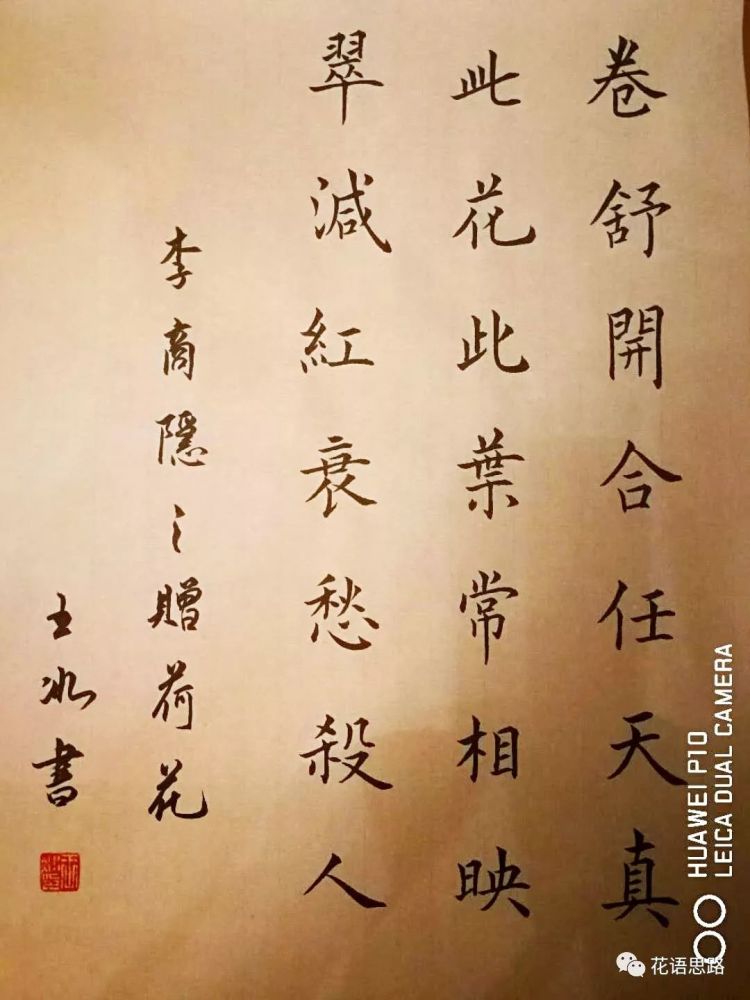 卷舒開合任天真
此花此葉常相映
翠減紅衰愁殺人
李商隱之贈荷花
王冰書
HUAWEI P10
LEICA DUAL CAMERA
花语思路